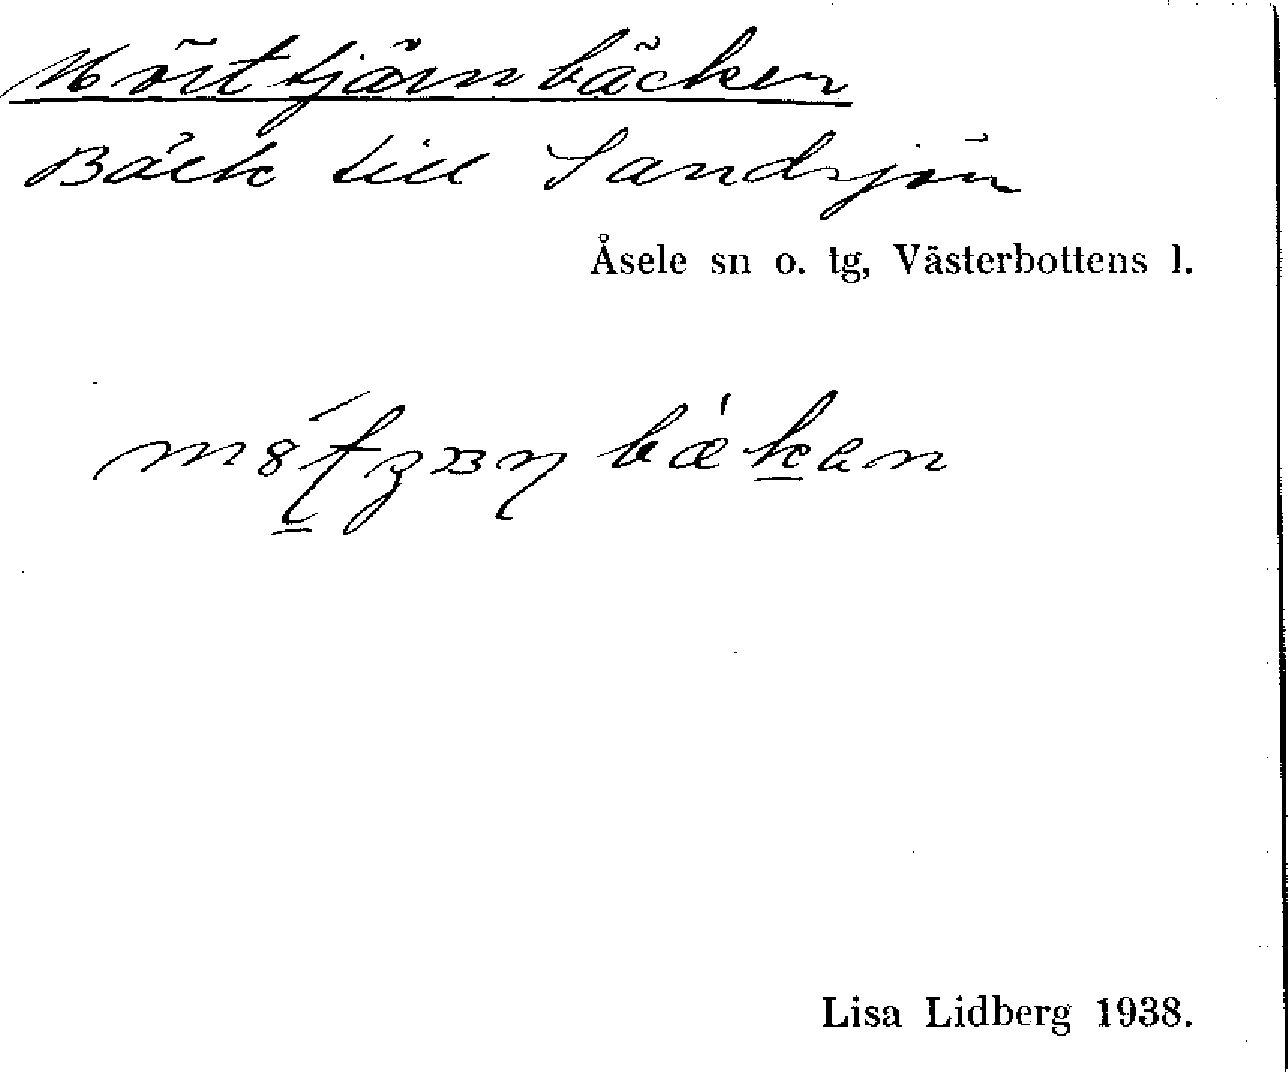 Mörttjärnbäcken
Bäck till Sandsjön
Åsele sn o. tg, Västerbottens l.
bækan
Lisa Lidberg 1938.